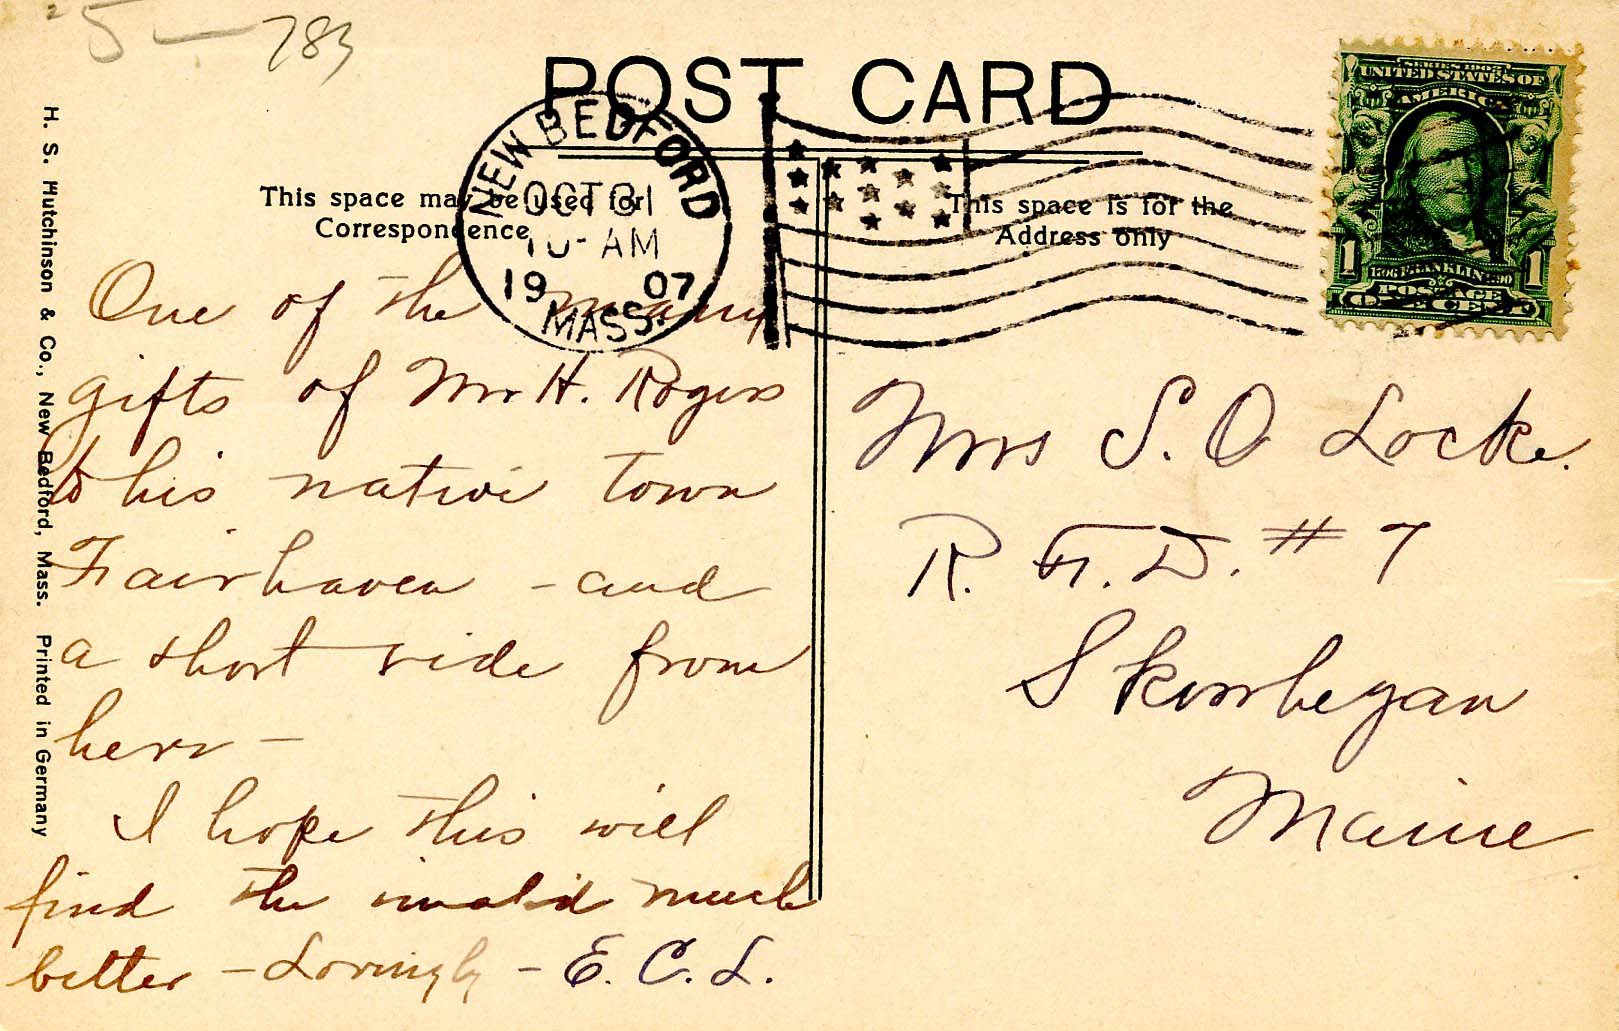 5 — 783
POST CARD
NEW BEDFORD
OCT 31
10 - AM
1907
MASS.
This space may be used for
Correspondence
This space is for the
Address only
SERIES 1902
UNITED STATES OF
AMERICA
1 1
1706 FRANKLIN 1790
POSTAGE
ONE CENT
H. S. Hutchinson & Co., New Bedford, Mass. Printed in Germany
One of the many
gifts of Mr H. Rogers
to his native town
Fairhaven - and
a short ride from
here -
I hope this will
find the invalid much
better - Lovingly - E. C. L.
Mrs S. O Locke.
R. F. D. # 7
Skowhegan
Maine